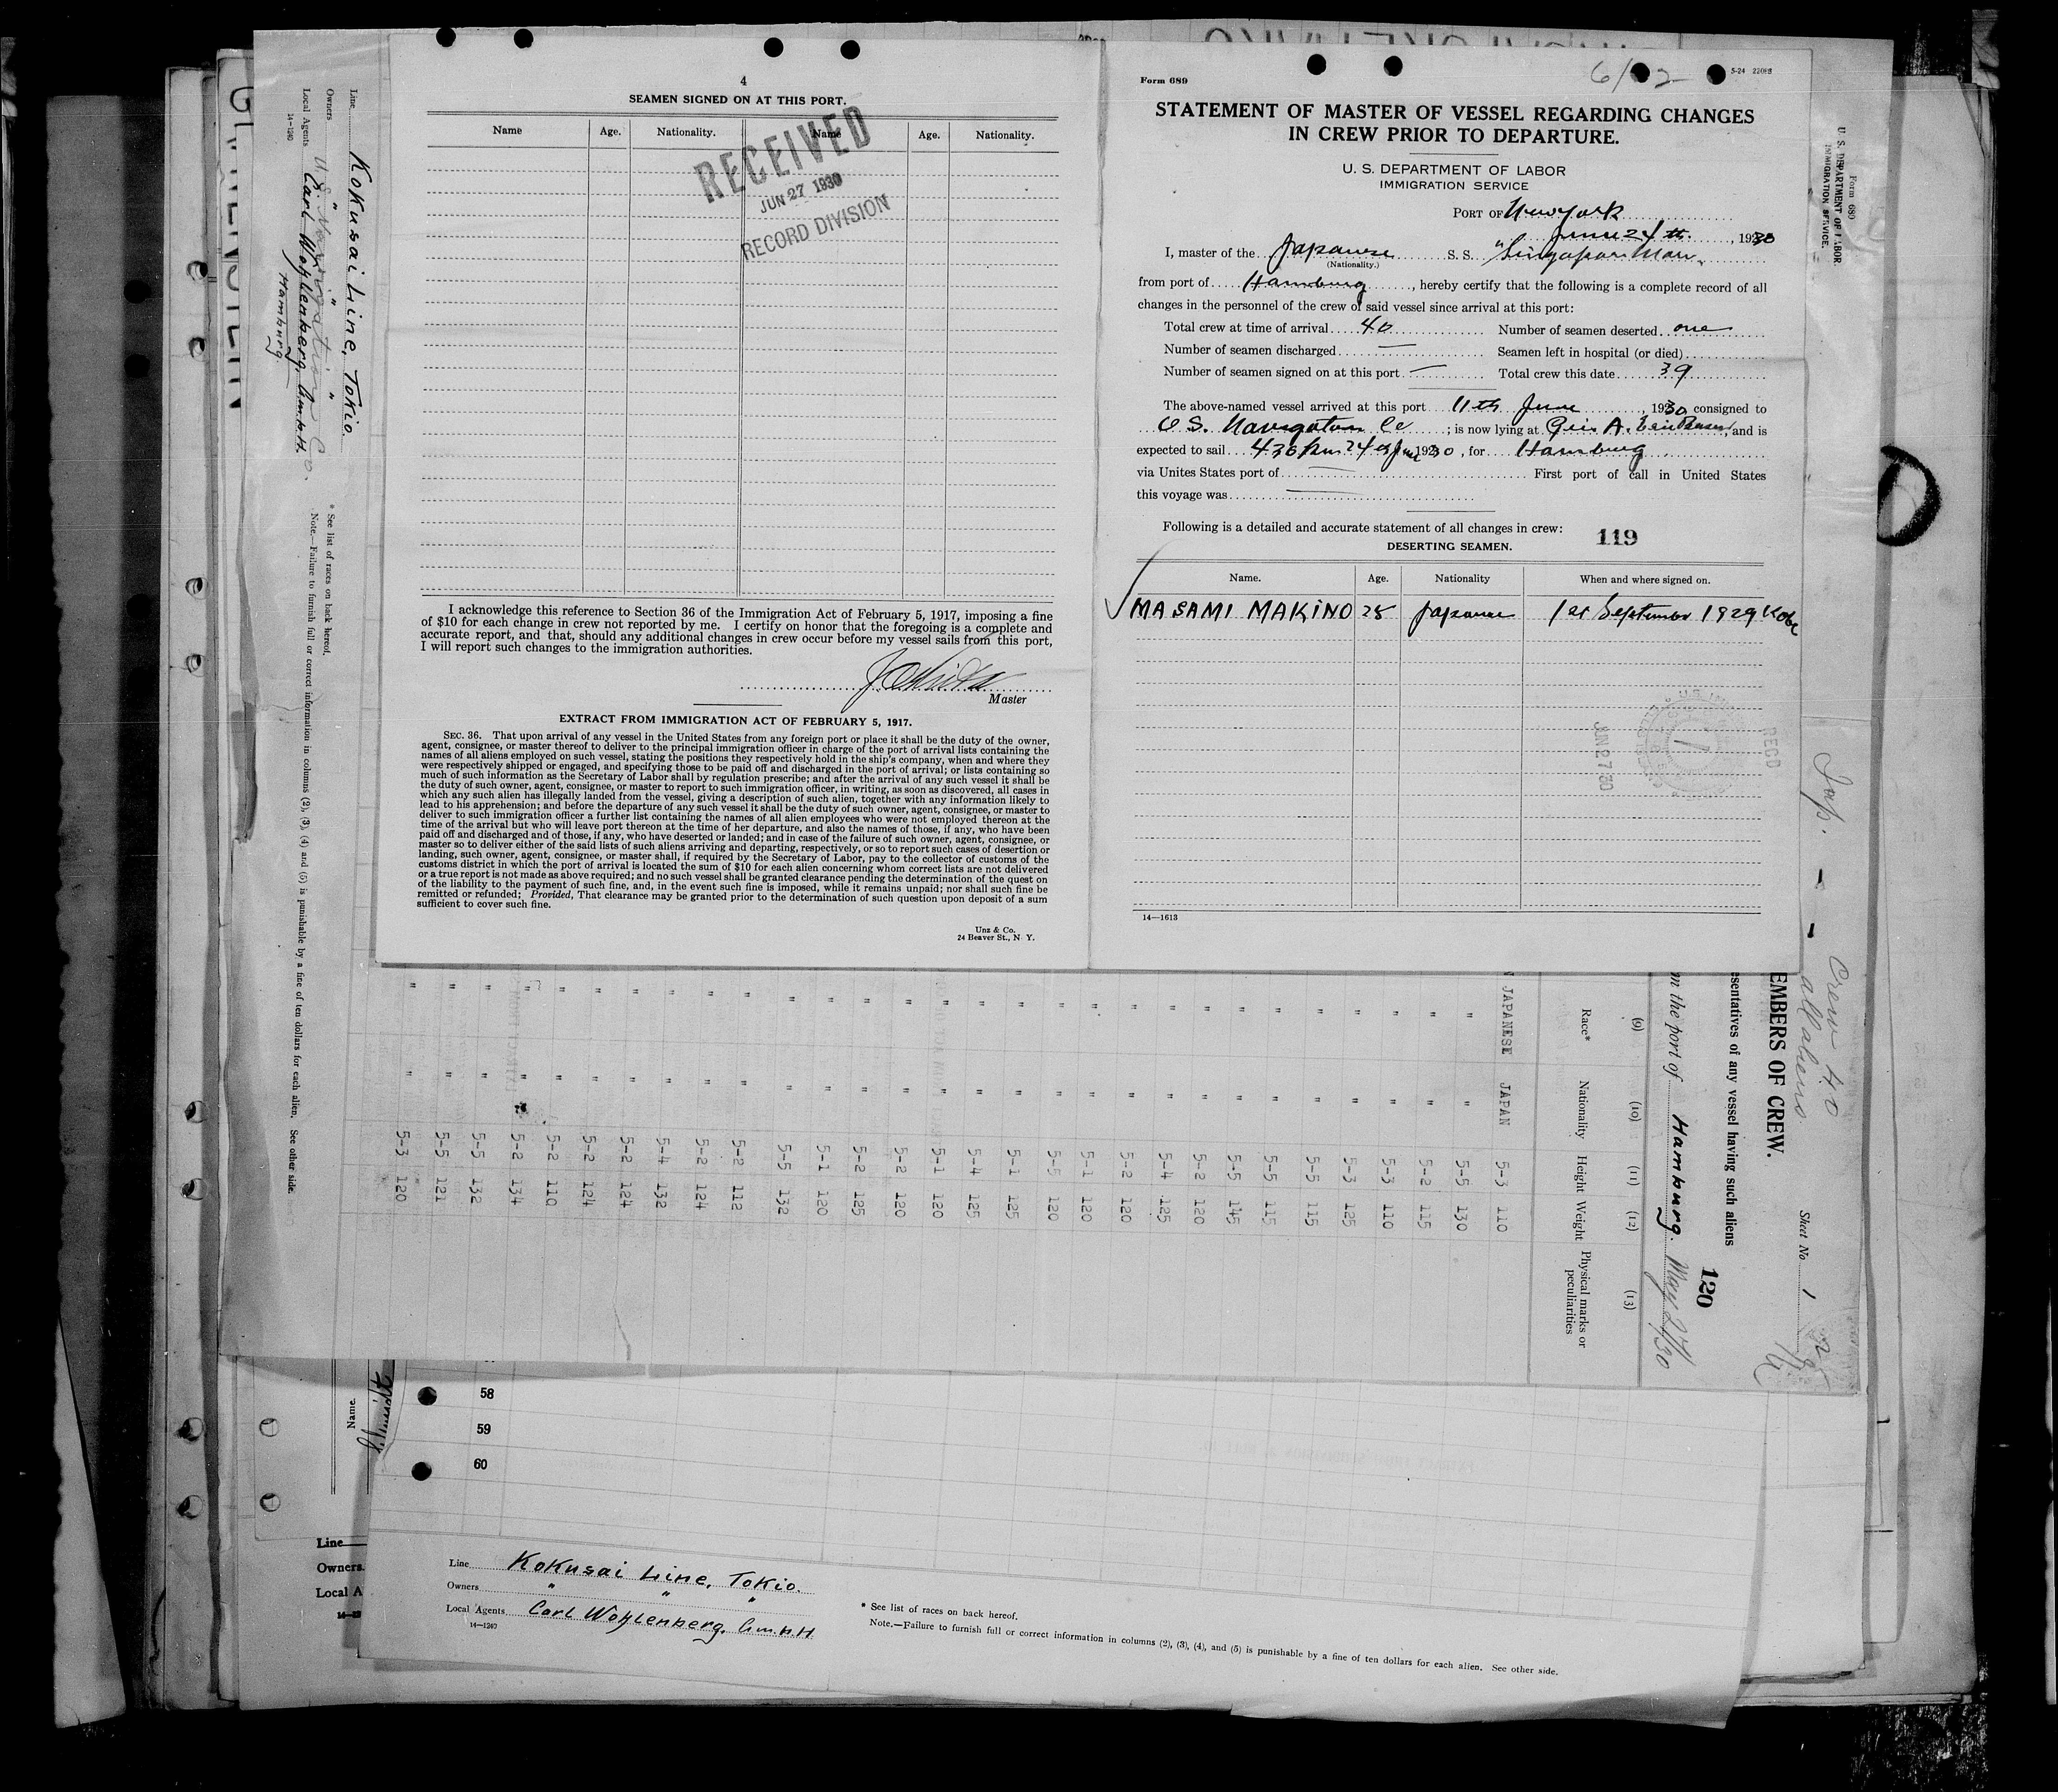 4
SEAMEN SIGNED ON AT THIS PORT.
Name Age. Nationality. Name Age. Nationality.
RECEIVED
JUN 27 1930
RECORD DIVISION
I acknowledge this reference to Section 36 of the Immigration Act of February 5, 1917, imposing a fine
of $10 for each change in crew not reported by me. I certify on honor that the foregoing is a complete and
accurate report, and that, should any additional changes in crew occur before my vessel sails from this port,
I will report such changes to the immigration authorities.
Master
EXTRACT FROM IMMIGRATION ACT OF FEBRUARY 5, 1917.
SEC. 36. That upon arrival of any vessel in the United States from any foreign port or place it shall be the duty of the owner,
agent, consignee, or master thereof to deliver to the principal immigration officer in charge of the port of arrival lists containing the
names of all aliens employed on such vessel, stating the positions they respectively hold in the ship's company, when and where they
were respectively shipped or engaged, and specifying those to be paid off and discharged in the port of arrival; or lists containing so
much of such information as the Secretary of Labor shall by regulation prescribe; and after the arrival of any such vessel it shall be
the duty of such owner, agent, consignee, or master to report to such immigration officer, in writing, as soon as discovered, all cases in
which any such alien has illegally landed from the vessel, giving a description of such alien, together with any information likely to
lead to his apprehension; and before the departure of any such vessel it shall be the duty of such owner, agent, consignee, or master to
deliver to such immigration officer a further list containing the names of all alien employees who were not employed thereon at the
time of the arrival but who will leave port thereon at the time of her departure, and also the names of those, if any, who have been
paid off and discharged and of those, if any, who have deserted or landed; and in case of the failure of such owner, agent, consignee, or
master so to deliver either of the said lists of such aliens arriving and departing, respectively, or so to report such cases of desertion or
landing, such owner, agent, consignee, or master shall, if required by the Secretary of Labor, pay to the collector of customs of the
customs district in which the port of arrival is located the sum of $10 for each alien concerning whom correct lists are not delivered
or a true report is not made as above required; and no such vessel shall be granted clearance pending the determination of the quest on
of the liability to the payment of such fine, and, in the event such fine is imposed, while it remains unpaid; nor shall such fine be
remitted or refunded; Provided, That clearance may be granted prior to the determination of such question upon deposit of a sum
sufficient to cover such fine.
Unz & Co.
24 Beaver St., N Y.
Form 689
5-24
STATEMENT OF MASTER OF VESSEL REGARDING CHANGES
IN CREW PRIOR TO DEPARTURE.
U. S. DEPARTMENT OF LABOR
IMMIGRATION SERVICE
PORT OF New York
June 24 th , 1930
I, master of the Japanese S. S. "Singapore Maru
(Nationality.)
from port of Hamburg, hereby certify that the following is a complete record of all
changes in the personnel of the crew of said vessel since arrival at this port:
Total crew at time of arrival 40 Number of seamen deserted one
Number of seamen discharged — Seamen left in hospital (or died)
Number of seamen signed on at this port — Total crew this date 39
The above-named vessel arrived at this port 11th June, 1930 consigned to
U S. Navigation Co ; is now lying at and is
expected to sail 430 pm 24 th June 1930, for Hamburg
via Unites States port of — First port of call in United States
this voyage was —
Following is a detailed and accurate statement of all changes in crew: 119
DESERTING SEAMEN.
Name. Age. Nationality When and where signed on.
MASAMI MAKINO 28 Japanese 1st September 1929 Kobe
RECD
JUN 27 30
14—1613
Form 689
U. S. DEPARTMENT OF LABOR
IMMIGRATION SERVICE.
Jap. - - Crew 40
all aliens
Sheet No. 1
EMBERS OF CREW.
esentatives of any vessel having such aliens
120
m the port of Hamburg. May 27/30
(9) (10) (11) (12) (13)
Race* Nationality Height Weight Physical marks or
peculiarities
JAPANESE JAPAN 5-3 110
" " 5-5 130
" " 5-2 115
" " 5-3 110
" " 5-3 125
" " 5-5 115
" " 5-5 115
" " 5-5 145
" " 5-2 120
" " 5-4 125
" " 5-2 120
" " 5-1 120
" " 5-5 120
" " 5-1 125
" " 5-4 125
" " 5-1 120
" " 5-2 120
" " 5-2 125
" " 5-1 120
" " 5-5 132
" " 5-2 112
" " 5-2 124
" " 5-4 132
" " 5-2 124
" " 5-2 124
" " 5-2 110
" " 5-2 134
" " 5-5 132
" " 5-5 121
" " 5-3 120
Line Kokusai Line, Tokio.
Owners " " "
Local Agents Carl Wohlenberg, G.m.b.H.
Hamburg.
14-1240
* See list of races on back hereof.
Note.—Failure to furnish full or correct information in columns (2), (3), (4) and (5) is punishable by a fine of ten dollars for each alien. See other side.
58
59
60
Name.
Line
Owners
Local A
Line Kokusai Line, Tokio.
Owners " " "
Local Agents Carl Wohlenberg, G.m.b.H
14—1240
* See list of races on back hereof.
Note.—Failure to furnish full or correct information in columns (2), (3), (4), and (5) is punishable by a fine of ten dollars for each alien. See other side.